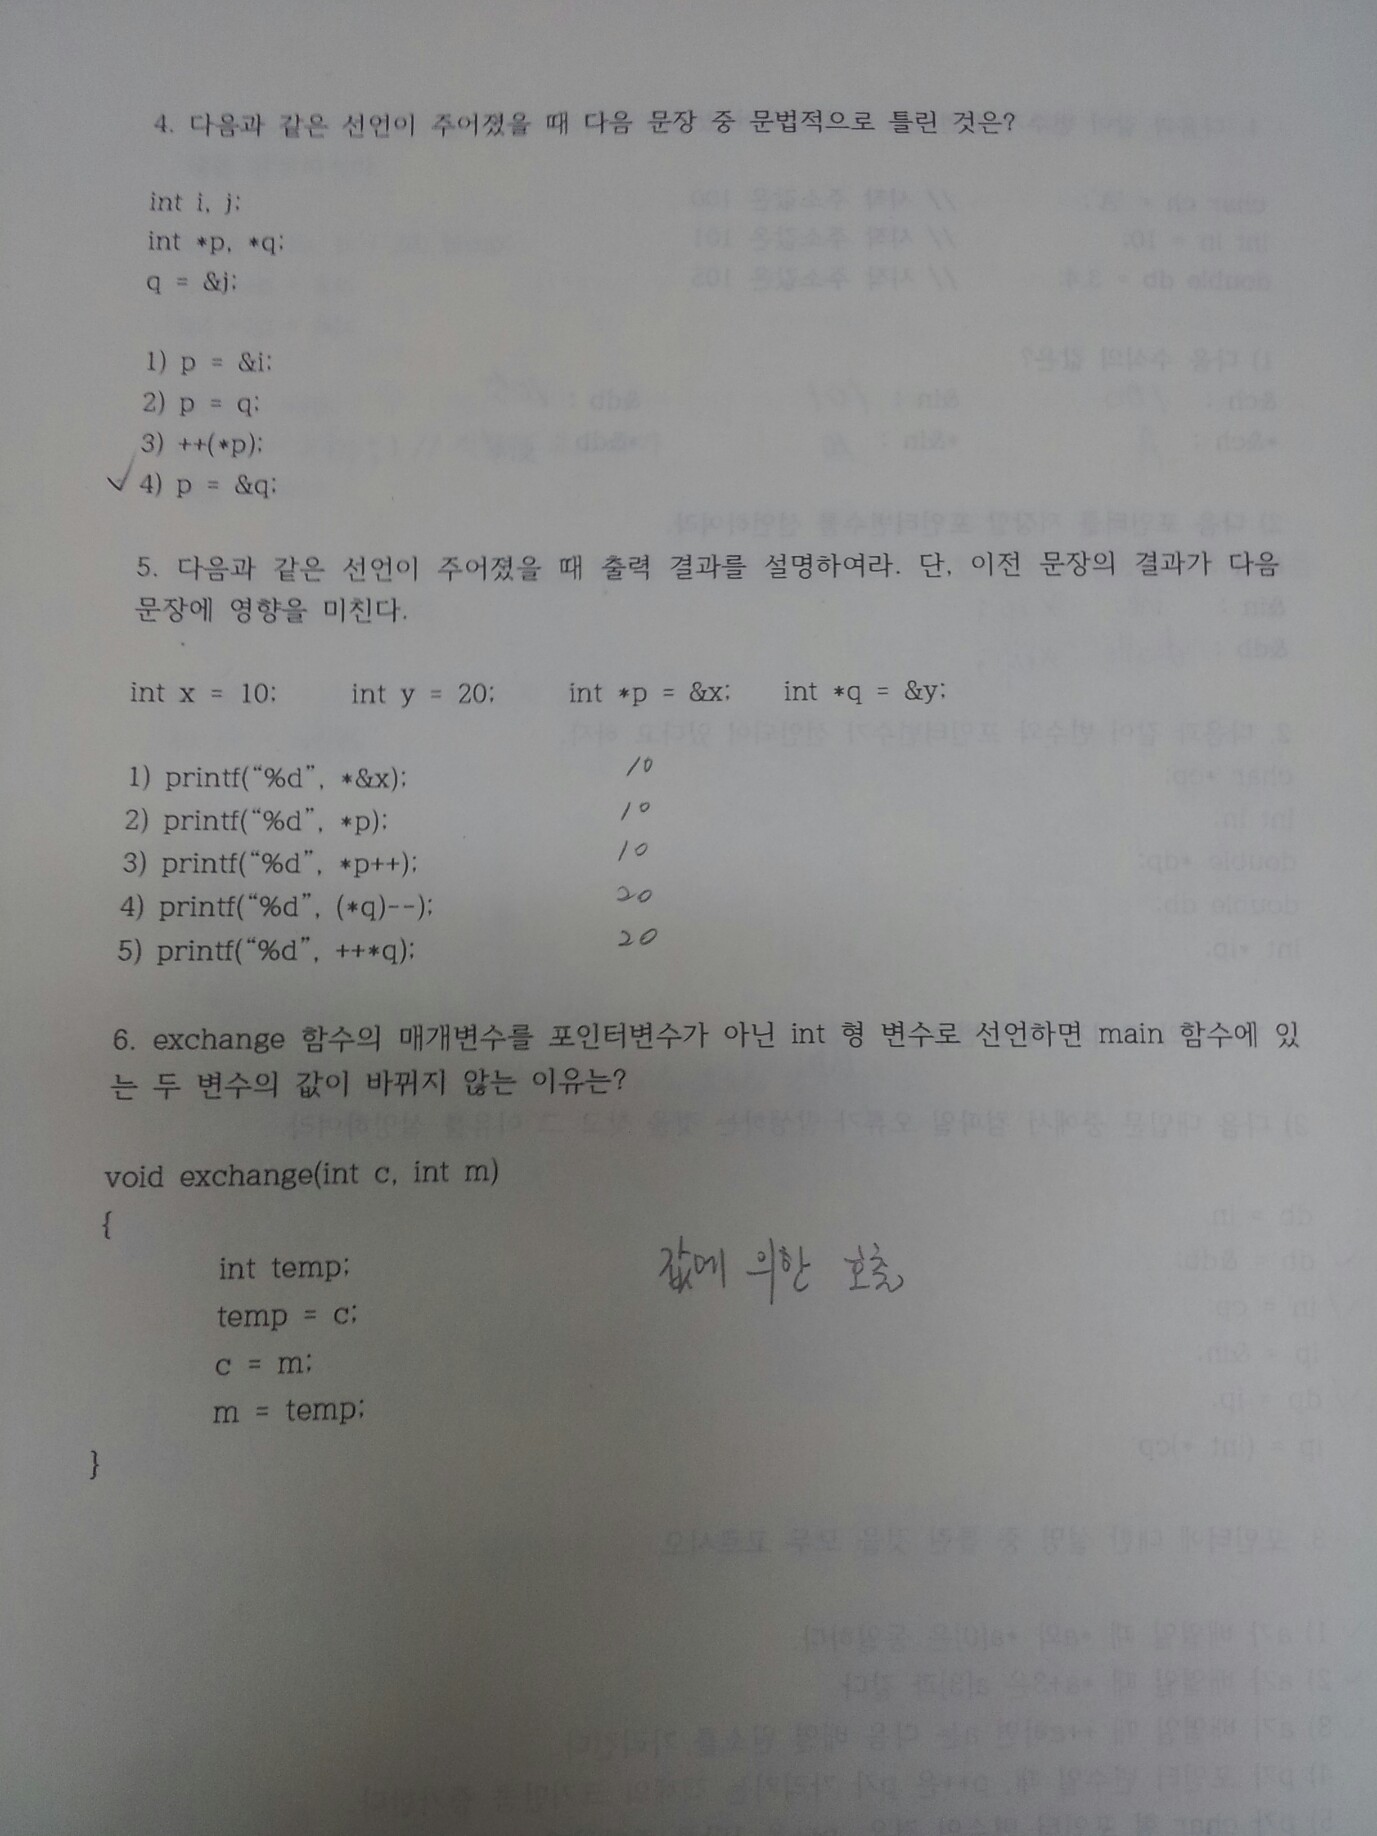 4. 다음과 같은 선언이 주어졌을 때 다음 문장 중 문법적으로 틀린 것은?
int i, j;
int *p, *q;
q = &j;
1) p = &i;
2) p = q;
3) ++(*p);
4) p = &q;
5. 다음과 같은 선언이 주어졌을 때 출력 결과를 설명하여라. 단, 이전 문장의 결과가 다음
문장에 영향을 미친다.
int x = 10; int y = 20; int *p = &x; int *q = &y;
1) printf(“%d”, *&x); 10
2) printf(“%d”, *p); 10
3) printf(“%d”, *p++); 10
4) printf(“%d”, (*q)--); 20
5) printf(“%d”, ++*q); 20
6. exchange 함수의 매개변수를 포인터변수가 아닌 int 형 변수로 선언하면 main 함수에 있
는 두 변수의 값이 바뀌지 않는 이유는?
void exchange(int c, int m)
{
int temp; 값에 의한 호출
temp = c;
c = m;
m = temp;
}